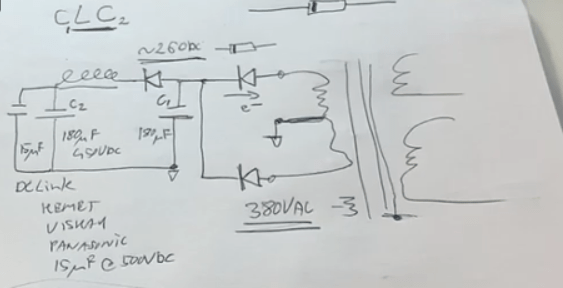 CLC₂
~260DC
C2
C1
e⁻
15µF
180µF
450VDC
180µF
380VAC
DCLink
KEMET
VISHAY
PANASONIC
15µF @ 500VDC